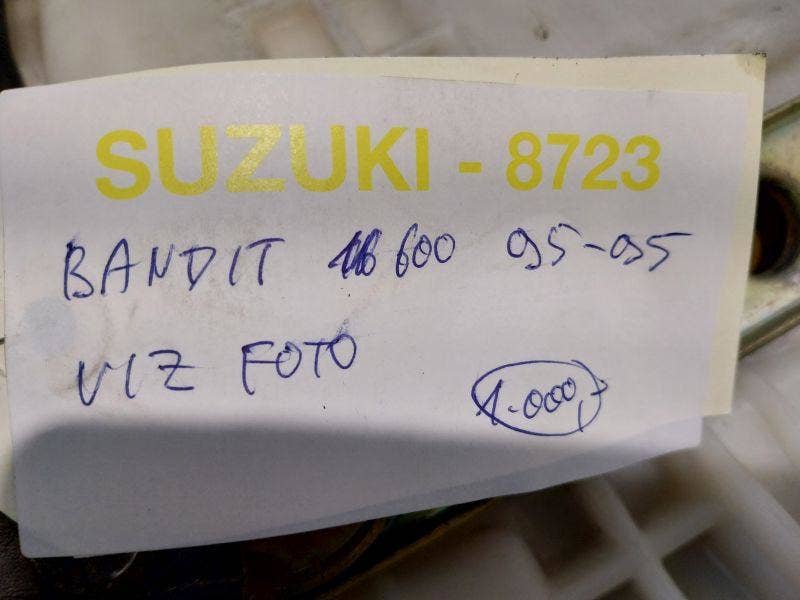 SUZUKI - 8723
BANDIT 600 95-95
VIZ FOTO
1.000,-